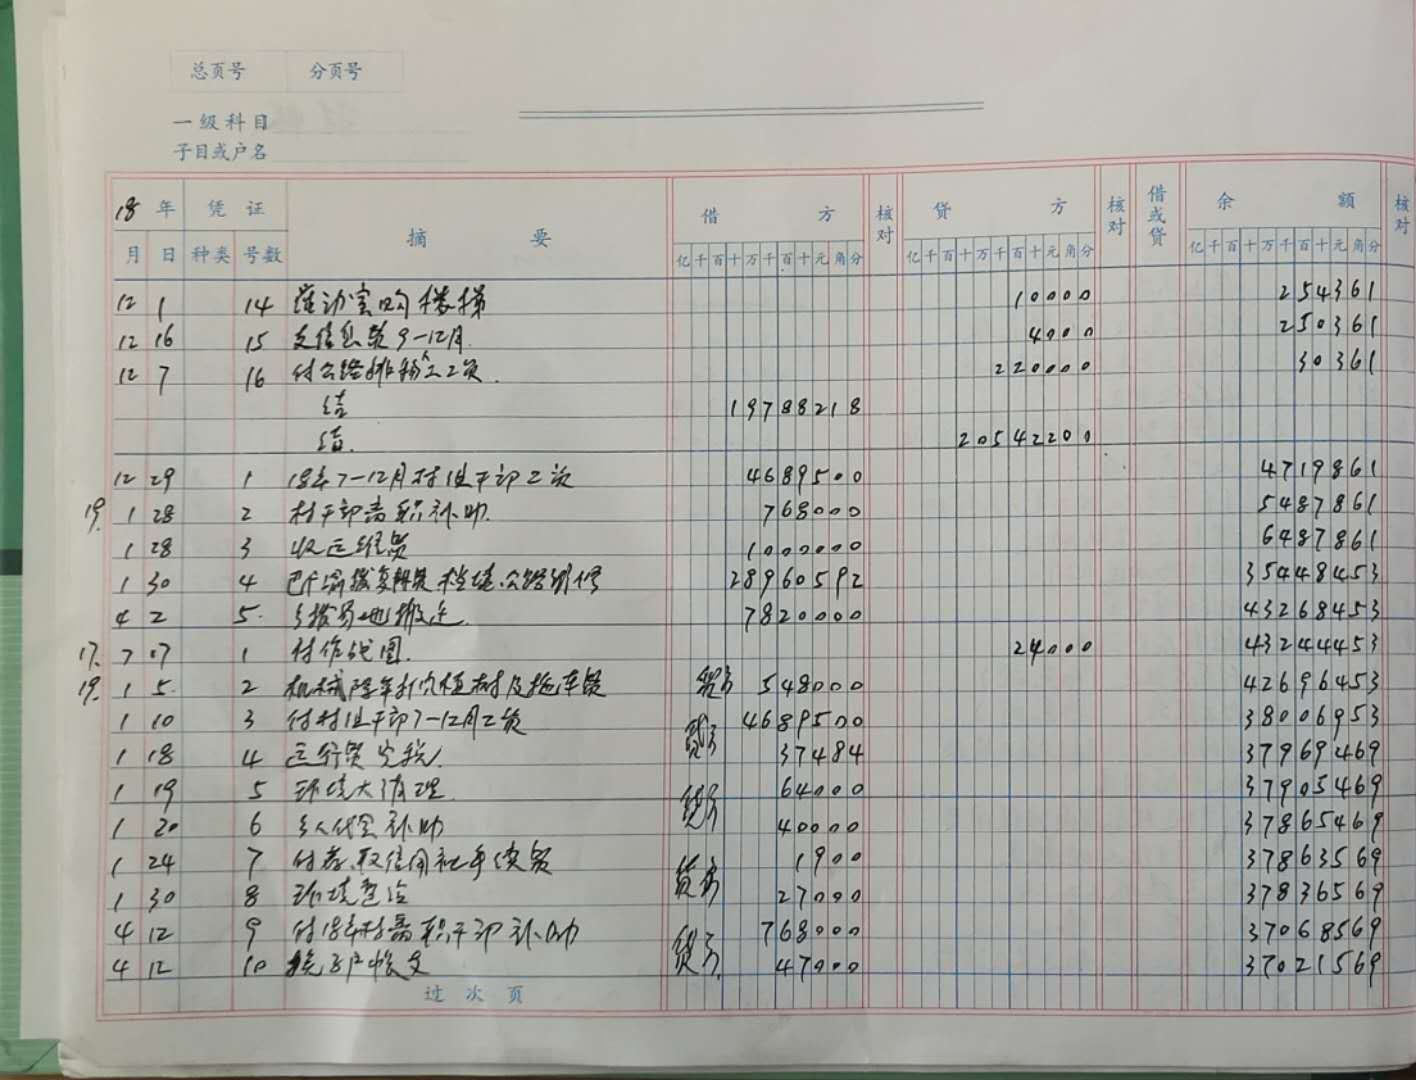 总页号 分页号
一级科目
子目或户名
18 年 凭 证 摘 要 借 方 核对 贷 方 核对 借或贷 余 额 核对
月 日 种类 号数 亿千百十万千百十元角分 亿千百十万千百十元角分 亿千百十万千百十元角分
12 1 14 购楼梯 10000 254361
12 16 15 支信息费9-12月 4000 250361
12 7 16 付公路 人工工资. 220000 30361
结 19788218
结. 20542200
12 29 1 18年7-12月村组干部工资 4689500 4719861
19. 1 28 2 村干部离职补助. 768000 5487861
1 28 3 收运维费 1000000 6487861
1 30 4 公路 28960592 35448453
4 2 5. 乡拨易地搬迁. 7820000 43268453
17. 7 07 1 付作战图. 24000 43244453
19. 1 5. 2 机械 年 植树及拖车费 贷方 548000 42696453
1 10 3 付村组干部7-12月工资 贷方 4689500 38006953
1 18 4 运行费 税. 37484 37969469
1 19 5 环境大清理. 贷方 64000 37905469
1 20 6 乡人代会补助 40000 37865469
1 24 7 付存、取信用社手续费 贷方 1900 37863569
1 30 8 环境整治 27000 37836569
4 12 9 付18年村离职干部补助 贷方 768000 37068569
4 12 10 户 47000 37021569
过 次 页